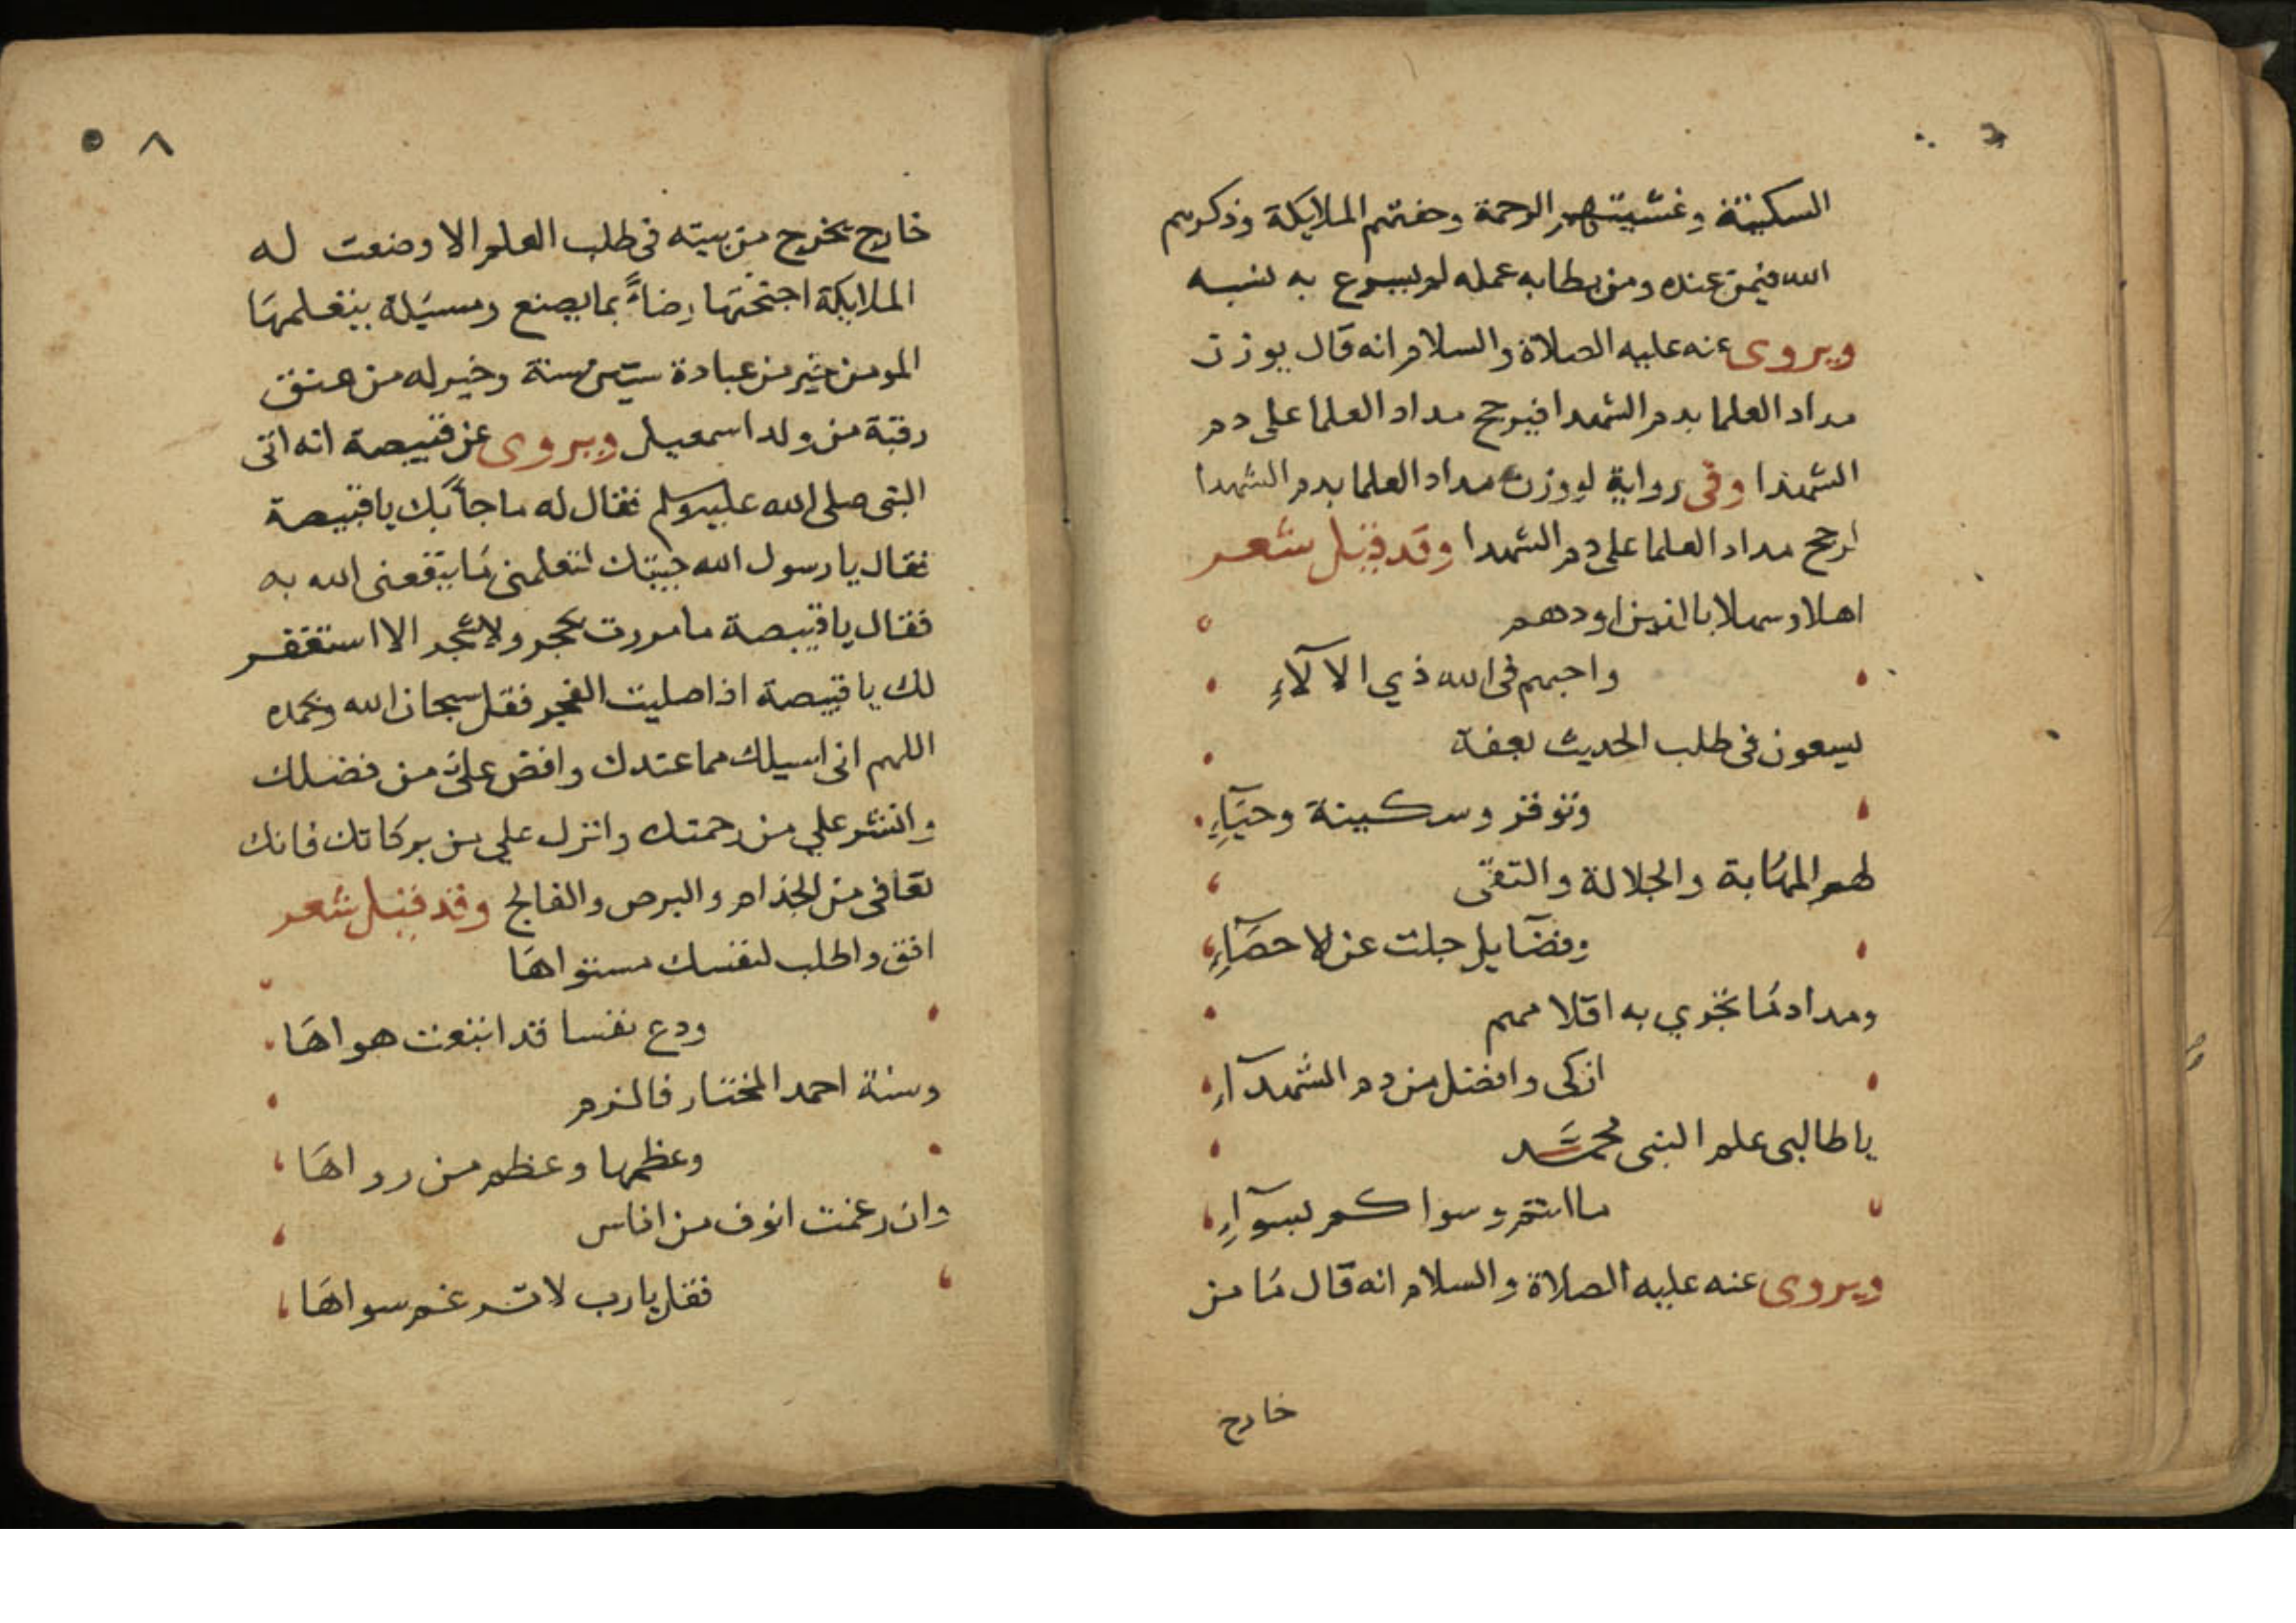 السكينة وغشيتهم الرحمة وحفتهم الملايكة وذكرهم
الله فيمن عنده ومن بطا به عمله لم يسرع به نسبه
ويروى عنه عليه الصلاة والسلام انه قال يوزن
مداد العلما بدم الشهدا فيرجح مداد العلما على دم
الشهدا وفى رواية لو وزن مداد العلما بدم الشهدا
لرجح مداد العلما على دم الشهدا وقد قيل شعر
اهلا وسهلا بالذين اودهم
واحبهم فى الله ذي الالآءِ
يسعون فى طلب الحديث بعفة
وتوقر وسكينة وحيآءِ
لهم المهابة والجلالة والتقى
وفضايل جلت عن لاحصآءِ
ومداد ما تجري به اقلامهم
ازكى وافضل من دم الشهدآءِ
يا طالبى علم النبى محمد
ما انتم وسواكم بسوآءِ
ويروى عنه عليه الصلاة والسلام انه قال ما من
خارج
٨ ٥
خارج يخرج من بيته فى طلب العلم الا وضعت له
الملايكة اجنحتها رضاءً بما يصنع ومسيلة يتعلمها
المومن خير من عبادة ستين سنة وخير له من عتق
رقبة من ولد اسمعيل ويروى عن قبيصة انه اتى
النبى صلى الله عليه وسلم فقال له ما جآ بك يا قبيصة
فقال يا رسول الله جيتك لتعلمنى ما ينفعنى الله به
فقال يا قبيصة ما مررت بحجر ولا شجر الا استغفر
لك يا قبيصة اذا صليت الفجر فقل سبحان الله وبحمده
اللهم انى اسيلك مما عندك وافض على من فضلك
وانشر علي من رحمتك وانزل علي من بركاتك فانك
تعافى من الجذام والبرص والفالج وقد قيل شعر
افق واطلب لنفسك مستواها
ودع نفسا قد اتبعت هواها
وسنة احمد المختار فالزم
وعظمها وعظم من رواها
وان رغمت انوف من اناس
فقل يا رب لا ترغم سواها